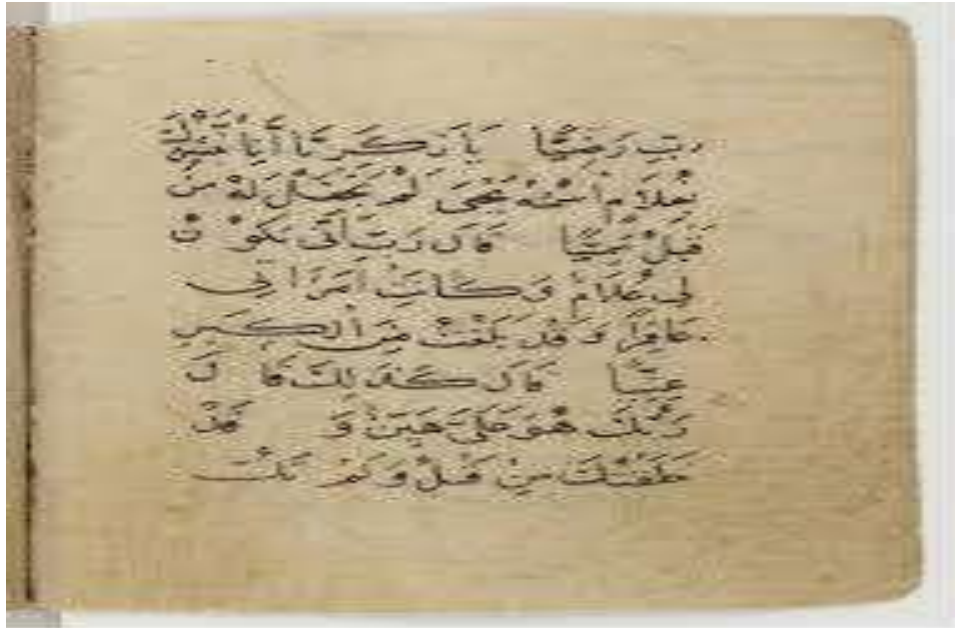 رَبِّ رَضِيًّا يَا زَكَرِيَّا إِنَّا نُبَشِّرُكَ
بِغُلَامٍ اسْمُهُ يَحْيَى لَمْ نَجْعَلْ لَهُ مِنْ
قَبْلُ سَمِيًّا قَالَ رَبِّ أَنَّى يَكُونُ
لِي غُلَامٌ وَكَانَتِ امْرَأَتِي
عَاقِرًا وَقَدْ بَلَغْتُ مِنَ الْكِبَرِ
عِتِيًّا قَالَ كَذَلِكَ قَالَ
رَبُّكَ هُوَ عَلَيَّ هَيِّنٌ وَقَدْ
خَلَقْتُكَ مِنْ قَبْلُ وَلَمْ تَكُ